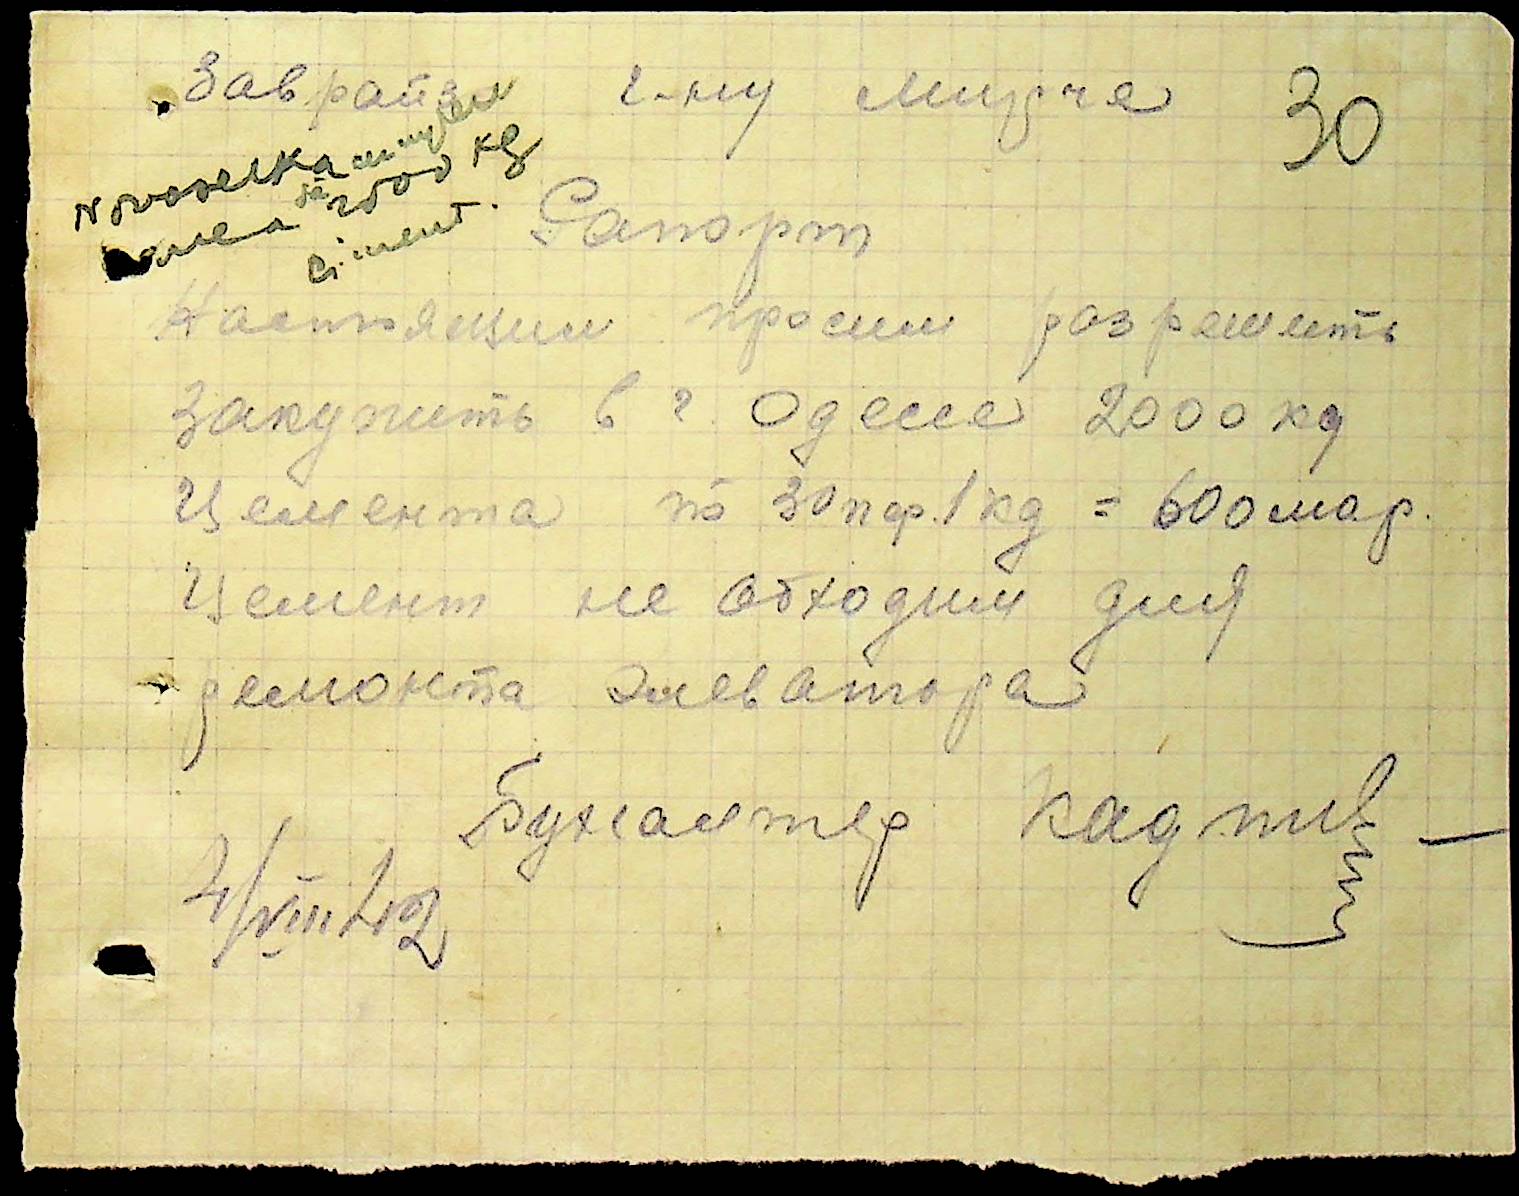 Заврайз г-ну Мирче 30
Novoselka
2500 kg
ciment.
Рапорт
Настоящим просим разрешить
Закупить в г. Одессе 2000 кg
Цемента по 30 пф. 1 кg = 600 мар.
Цемент не обходим для
ремонта элеватора
Бухгалтер
4/VIII 42